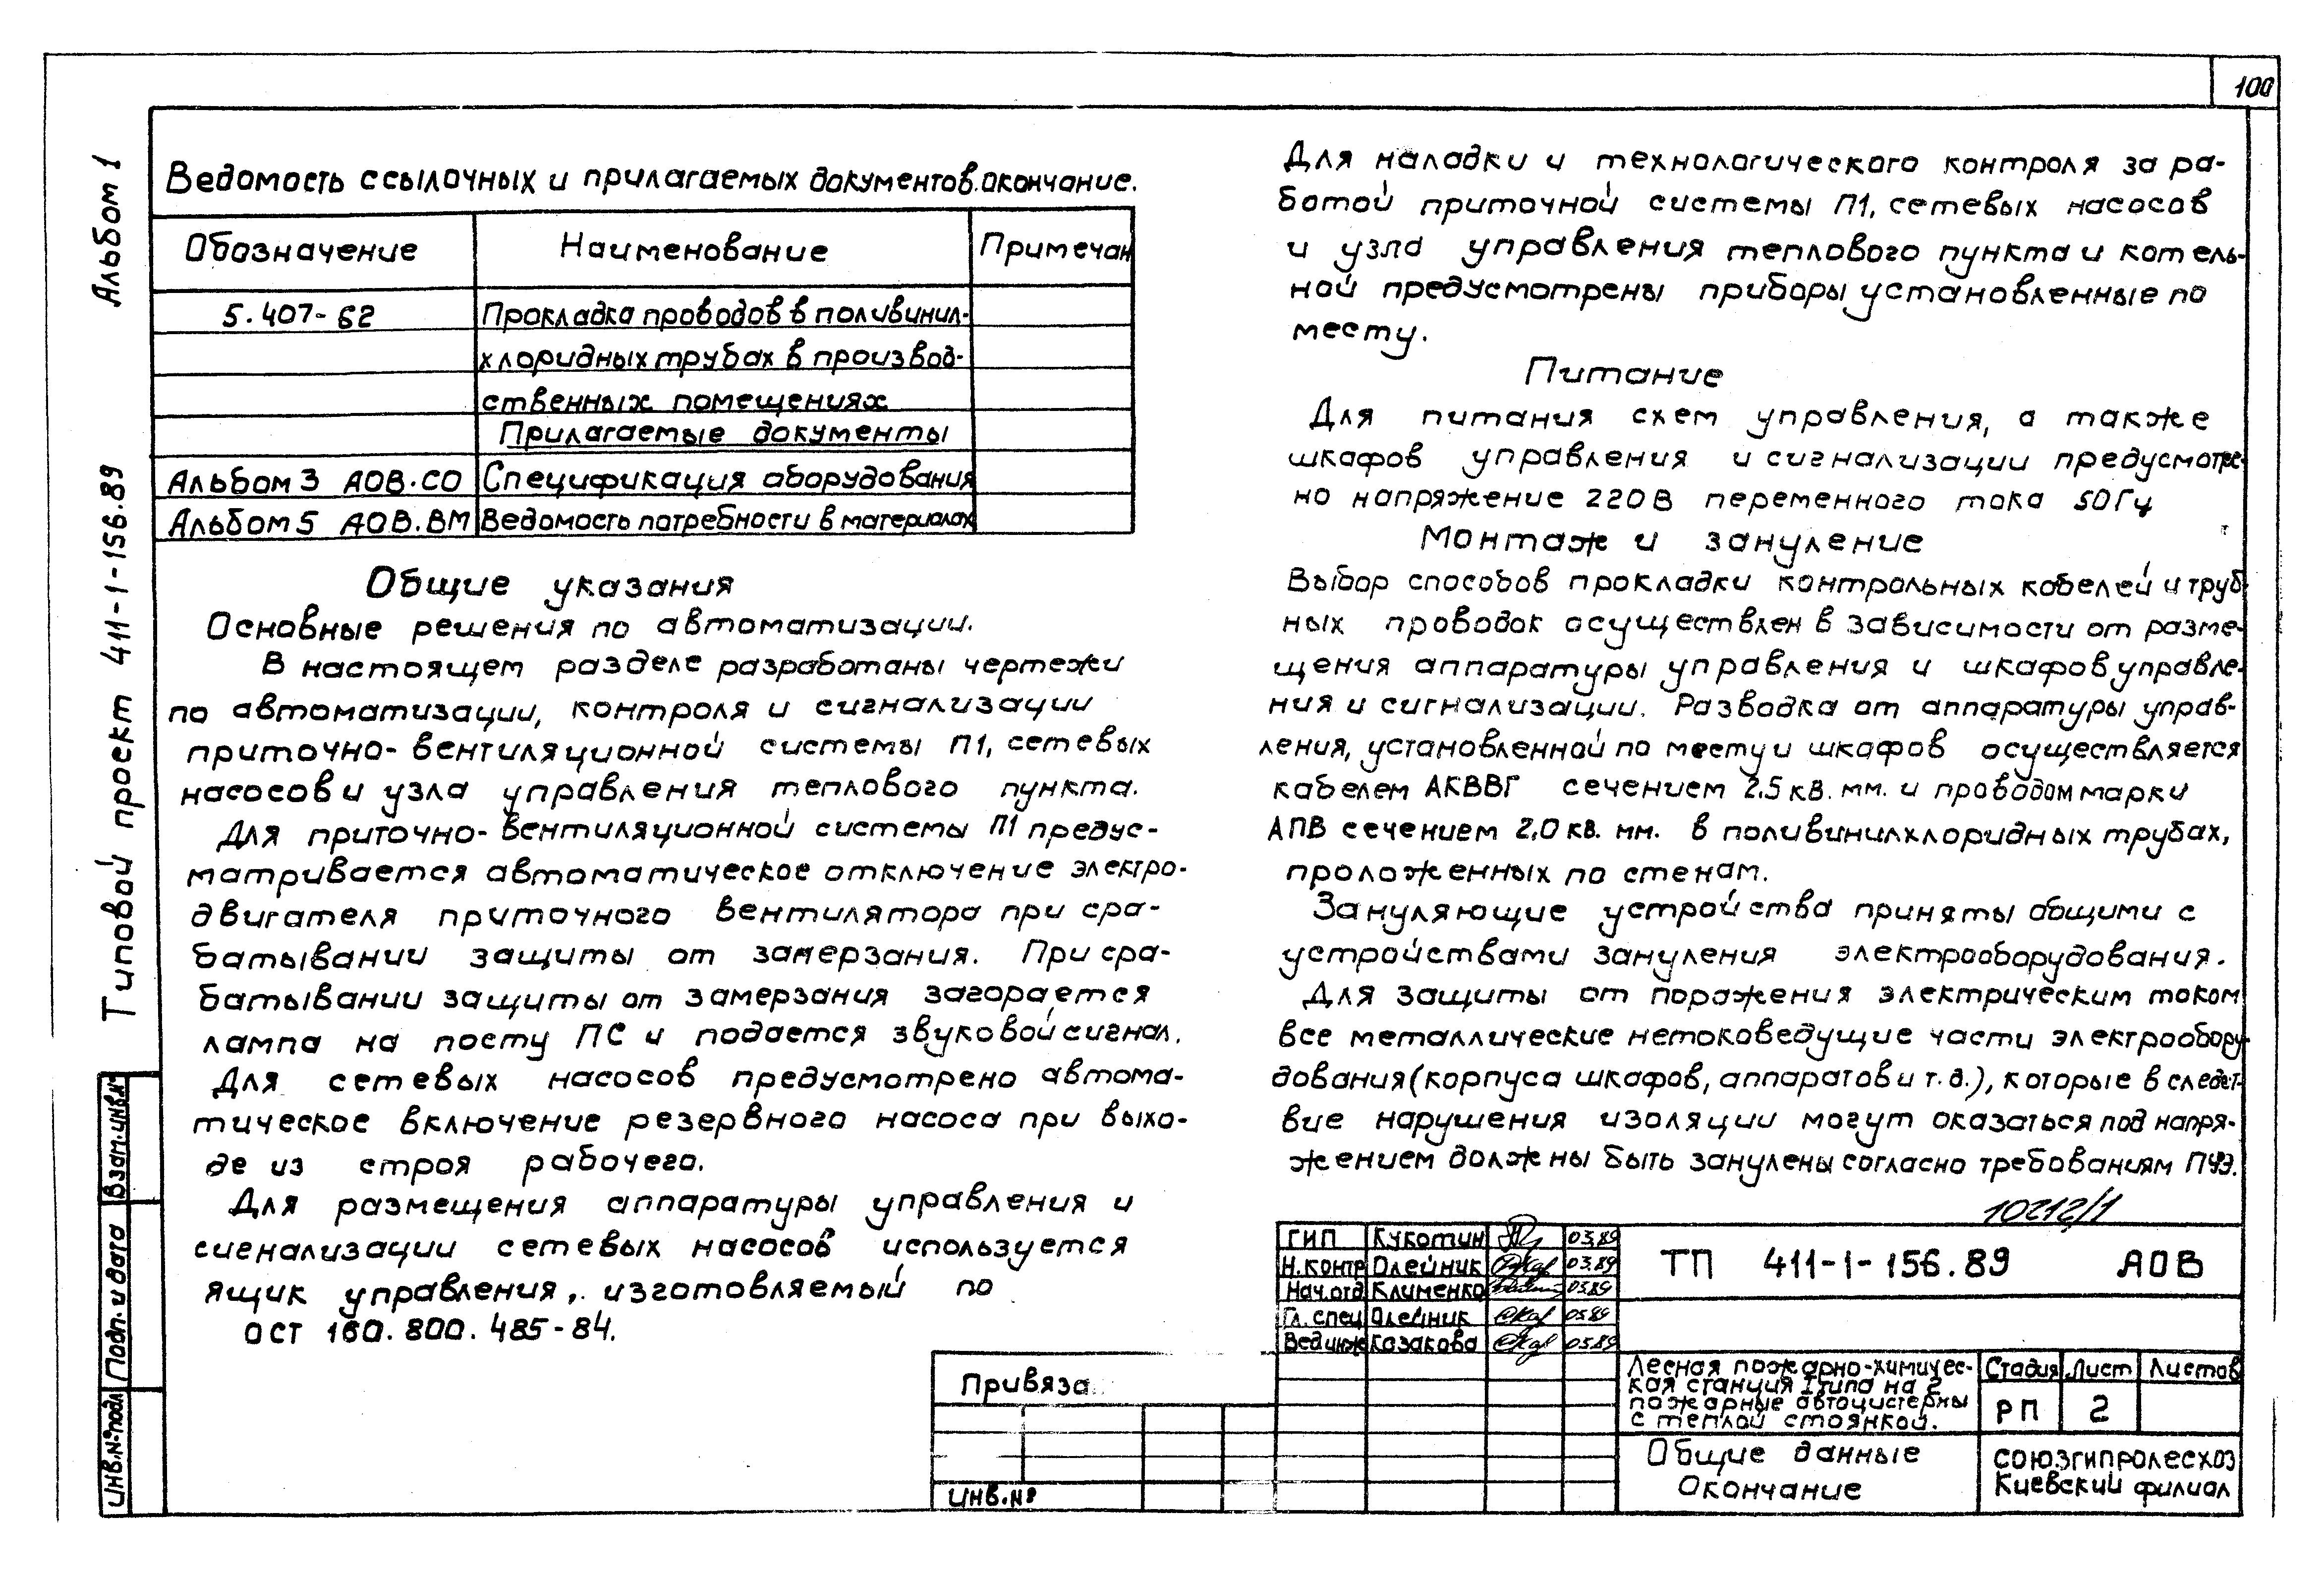 100
Альбом 1
Типовой проект 411-1-156.89
Взам.инв.№
Подп. и дата
Инв.№подл
Ведомость ссылочных и прилагаемых документов.окончание.
Обозначение Наименование Примечан
5.407-62 Прокладка проводов в поливинил-
хлоридных трубах в производ-
ственных помещениях
Прилагаемые документы
Альбом 3 АОВ.СО Спецификация оборудования
Альбом 5 АОВ.ВМ Ведомость потребности в материалах
Общие указания
Основные решения по автоматизации.
В настоящем разделе разработаны чертежи
по автоматизации, контроля и сигнализации
приточно-вентиляционной системы П1, сетевых
насосов и узла управления теплового пункта.
Для приточно-вентиляционной системы П1 предус-
матривается автоматическое отключение электро-
двигателя приточного вентилятора при сра-
батывании защиты от замерзания. При сра-
батывании защиты от замерзания загорается
лампа на посту ПС и подается звуковой сигнал.
Для сетевых насосов предусмотрено автома-
тическое включение резервного насоса при выхо-
де из строя рабочего.
Для размещения аппаратуры управления и
сигнализации сетевых насосов используется
ящик управления, изготовляемый по
ОСТ 160.800.485-84.
Для наладки и технологического контроля за ра-
ботой приточной системы П1, сетевых насосов
и узла управления теплового пункта и котель-
ной предусмотрены приборы установленные по
месту.
Питание
Для питания схем управления, а также
шкафов управления и сигнализации предусмотре-
но напряжение 220В переменного тока 50Гц
Монтаж и зануление
Выбор способов прокладки контрольных кабелей и труб-
ных проводок осуществлен в зависимости от разме-
щения аппаратуры управления и шкафов управле-
ния и сигнализации. Разводка от аппаратуры управ-
ления, установленной по месту и шкафов осуществляется
кабелем АКВВГ сечением 2,5 кв. мм. и проводом марки
АПВ сечением 2,0 кв. мм. в поливинилхлоридных трубах,
проложенных по стенам.
Зануляющие устройства приняты общими с
устройствами зануления электрооборудования.
Для защиты от поражения электрическим током
все металлические нетоковедущие части электрообору-
дования (корпуса шкафов, аппаратов и т.д.), которые в следст-
вие нарушения изоляции могут оказаться под напря-
жением должны быть занулены согласно требованиям ПУЭ.
10212/1
ГИП Кукотин 03.89
Н.контр Олейник 03.89
Нач.отд Клименко 03.89
Гл. спец Олейник 03.89
Вед инж Казакова 03.89
ТП 411-1-156.89 АОВ
Лесная пожарно-химичес-
кая станция I типа на 2
пожарные автоцистерны
с теплой стоянкой.
Стадия Лист Листов
РП 2
Общие данные
Окончание
СОЮЗГИПРОЛЕСХОЗ
Киевский филиал
Привяза
Инв.№